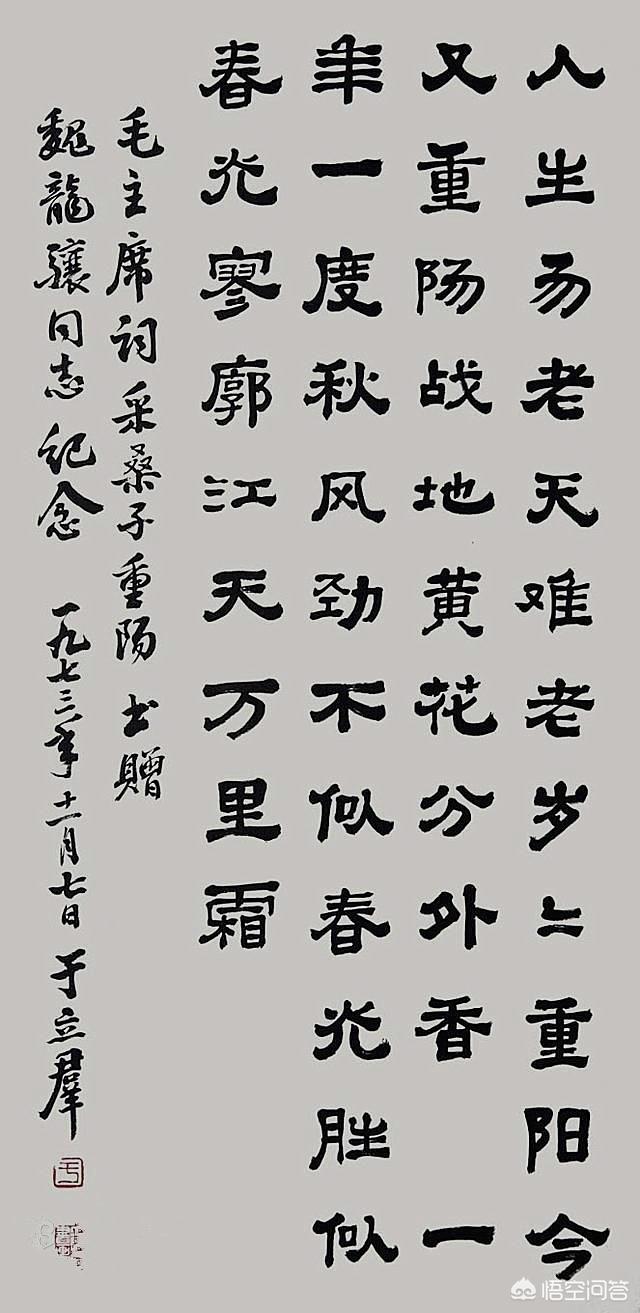 人生易老天难老岁々重阳今
又重阳战地黄花分外香一
年一度秋风劲不似春光胜似
春光寥廓江天万里霜
毛主席词采桑子重阳书赠
魏龍骧同志纪念 一九七三年十一月七日 于立羣
悟空问答